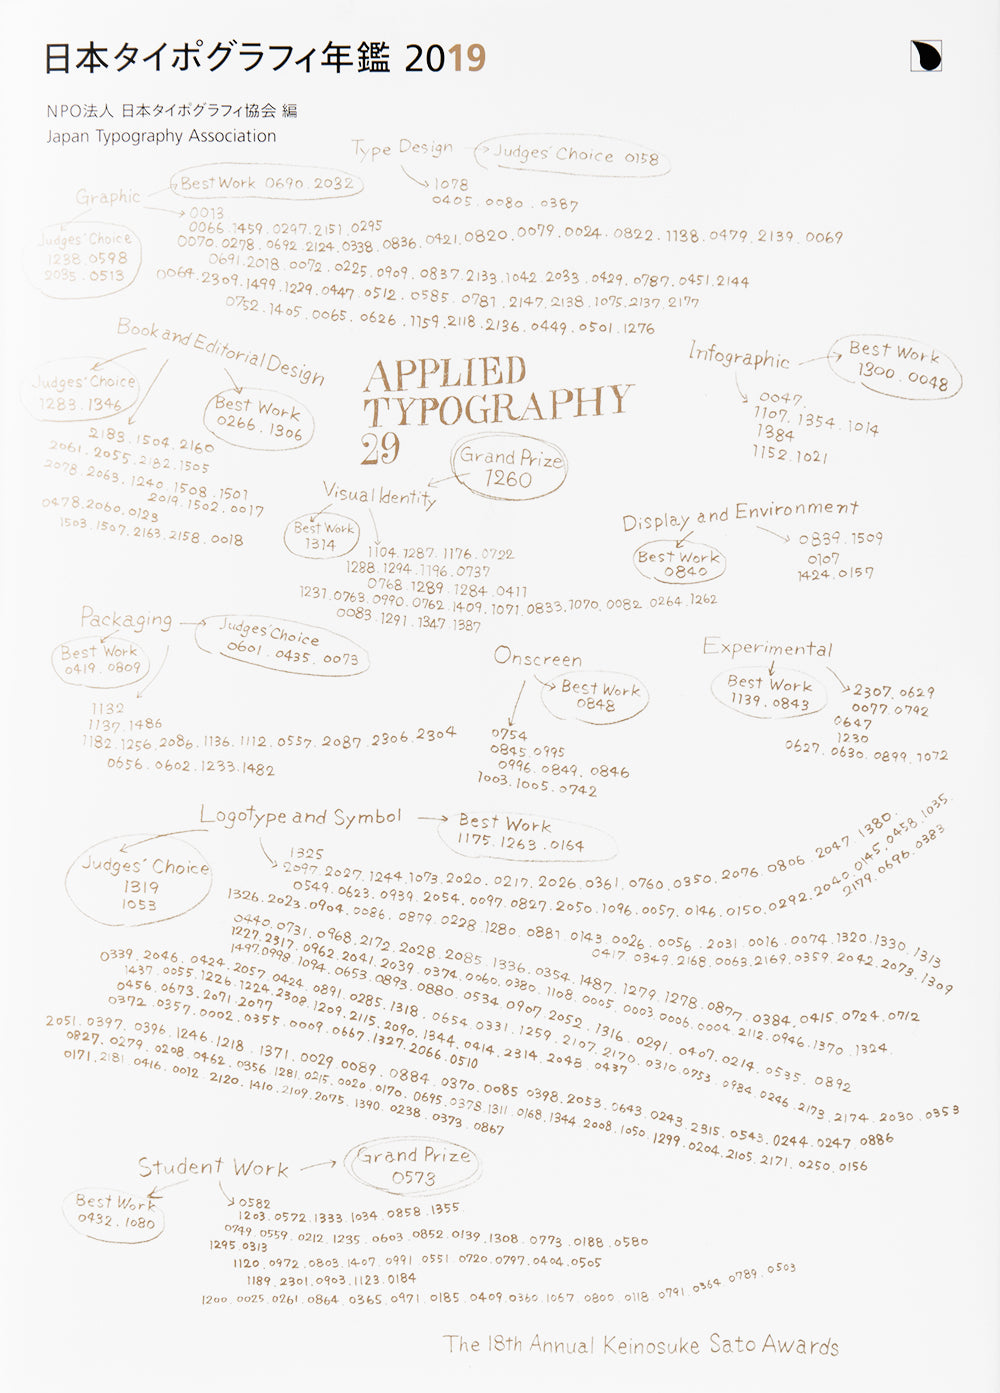 日本タイポグラフィ年鑑 2019
NPO法人 日本タイポグラフィ協会 編
Japan Typography Association
Type Design
Judges' Choice 0158
1078
0405.0080.0387
Graphic
Best Work 0690.2032
Judges' Choice
1238.0598
2035.0513
0013
0066.1459.0297.2151.0295
0070.0278.0692.2124.0338.0836.0421.0820.0079.0024.0822.1138.0479.2139.0069
0691.2018.0072.0225.0909.0837.2133.1042.2033.0429.0787.0451.2144
0064.2309.1499.1229.0447.0512.0585.0781.2147.2138.1075.2137.2177
0752.1405.0065.0626.1159.2118.2136.0449.0501.1276
Book and Editorial Design
Judges' Choice
1283.1346
Best Work
0266.1306
2183.1504.2160
2061.2055.2182.1505
2078.2063.1240.1508.1501
2019.1502.0017
0478.2060.0123
1503.1507.2163.2158.0018
APPLIED
TYPOGRAPHY
29
Infographic
Best Work
1300.0048
0047.
1107.1354.1014
1384
1152.1021
Grand Prize
1260
Visual Identity
Best Work
1314
1104.1287.1176.0722
1288.1294.1196.0737
0768.1289.1284.0411
1231.0763.0990.0762.1409.1071.0833.1070.0082.0264.1262
0083.1291.1347.1387
Display and Environment
Best Work
0840
0839.1509
0107
1424.0157
Packaging
Best Work
0419.0809
Judges' Choice
0601.0435.0073
1132
1137.1486
1182.1256.2086.1136.1112.0557.2087.2306.2304
0656.0602.1233.1482
Onscreen
Best Work
0848
0754
0845.0995
0996.0849.0846
1003.1005.0742
Experimental
Best Work
1139.0843
2307.0629
0077.0792
0647
1230
0627.0630.0899.1072
Logotype and Symbol
Best Work
1175.1263.0164
Judges' Choice
1319
1053
1325
2097.2027.1244.1073.2020.0217.2026.0361.0760.0350.2076.0806.2047.1380.
0549.0623.0939.2054.0097.0827.2050.1096.0057.0146.0150.0292.2040.0145.0458.1035.
2179.0696.0383
1326.2023.0904.0086.0879.0228.1280.0881.0143.0026.0056.2031.0016.0074.1320.1330.1313
0417.0349.2168.0063.2169.0359.2042.2073.1309
0440.0731.0968.2172.2028.2085.1336.0354.1487.1279.1278.0877.0384.0415.0724.0712
1227.2317.0962.2041.2039.0374.0060.0380.1108.0005.0003.0006.0004.2112.0946.1370.1324.
1497.0998.1094.0653.0893.0880.0534.0907.2052.1316.0291.0407.0214.0535.0892
0339.2046.0424.2057.0424.0891.0285.1318.0654.0331.1259.2107.2170.0310.0753.0984.0246.2173.2174.2030.0353
1437.0055.1226.1224.2308.1209.2115.2090.1344.0414.2314.2048.0437
0456.0673.2071.2077
0372.0357.0002.0355.0009.0667.1327.2066.0510
2051.0397.0396.1246.1218.1371.0029.0089.0884.0370.0085.0398.2053.0643.0243.2315.0543.0244.0247.0886
0827.0279.0208.0462.0356.1281.0215.0020.0170.0695.0378.1311.0168.1344.2008.1050.1299.0204.2105.2171.0250.0156
0171.2181.0416.0012.2120.1410.2109.2075.1390.0238.0373.0867
Student Work
Grand Prize
0573
Best Work
0432.1080
0582
1203.0572.1333.1034.0858.1355
0749.0559.0212.1235.0603.0852.0139.1308.0773.0188.0580
1295.0313
1120.0972.0803.1407.0991.0551.0720.0797.0404.0505
1189.2301.0903.1123.0184
1200.0025.0261.0864.0365.0971.0185.0409.0360.1067.0800.0118.0791.0364.0789.0503
The 18th Annual Keinosuke Sato Awards